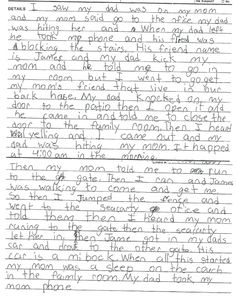 DETAILS I saw my dad was on my mom
and my mom said go to the office my dad
was hiting her and When my dad left
he took my phone and his friend was
blocking the stairs. His friend name
is James and my dad kick my
mom and told me to go in
my room but I went to go get
my mom's friend that live in our
back house. My dad knocked on my
door to the patio then I open it and
he came in and told me to close the
door to the family room. Then I heard
yelling and I came out and my
dad was hiting my mom. It happend
at 4:00 am in the morning.
Then my mom told me to run
to the gate. Then I ran and James
was walking to come and get me
So then I Jumped the fence and
went to the seacurty office and
told them then I heard my mom
runing to the gate then the seacurty
let her in then James got in my dads
car and drove the other gate his
car is a mibock. When all this started
my mom was a sleep on the cauch
in the family room. My dad took my
mom phone